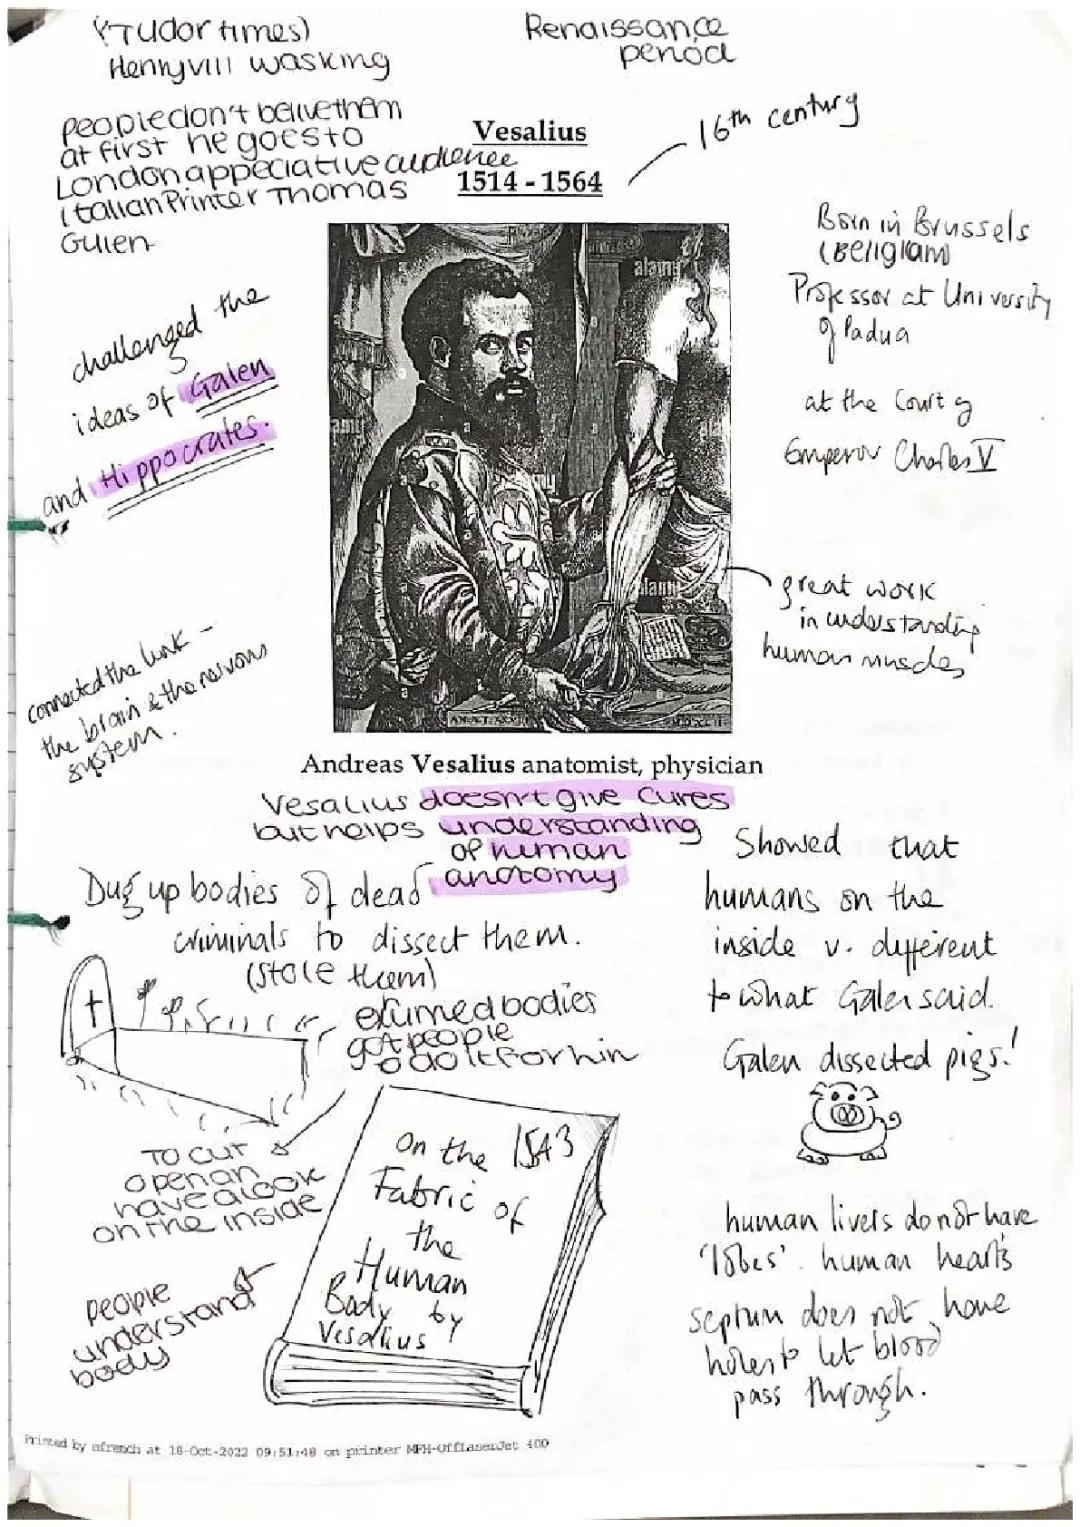 (Tudor times)
Henry VIII was king
Renaissance
period
people don't belive them
at first he goes to
London appeciative audience
Italian Printer Thomas
Guien
Vesalius
1514 - 1564
16th century
Born in Brussels
(Beligiam)
Professor at University
of Padua
at the Court of
Emperor Charles V
challenged the
ideas of Galen
and Hippocrates.
alamy
alamy
alamy
great work
in understanding
human muscles
connected the link -
the brain & the nervous
system.
Andreas Vesalius anatomist, physician
Vesalius doesn't give cures
but helps understanding
of human
anotomy
Dug up bodies of dead
criminals to dissect them.
(stole them)
exumed bodies
got people
to do it for him
Showed that
humans on the
inside v. different
to what Galen said.
Galen dissected pigs!
To cut
open an
have a look
on the inside
people
understand
body
On the 1543
Fabric of
the
Human
Body by
Vesalius
human livers do not have
'lobes'. human hearts
septum does not have
holes to let blood
pass through.
Printed by afrench at 18-Oct-2022 09:51:48 on printer MFH-OffLaserJet 400